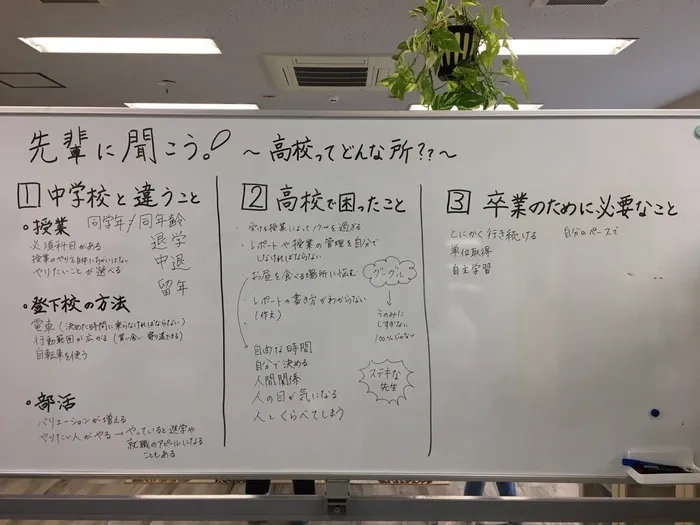 先輩に聞こう! ～高校ってどんな所??～
1 中学校と違うこと
・授業
同学年≠同年齢
必須科目がある
退学
授業のやり方自体にちがいはない
中退
やりたいことが選べる
留年
・登下校の方法
電車(決めた時間に乗らなければならない)
行動範囲が広がる(買い食い 寄り道できる)
自転車を使う
・部活
バリエーションが増える
やりたい人がやる→やっていると進学や
就職のアピールになる
こともある
2 高校で困ったこと
・受ける授業によって
・レポートや授業の管理を自分で
しなければならない
・お昼を食べる場所に悩む
グーグル
↓
うのみに
しすぎない
100%じゃない
・レポートの書き方がわからない
(作文)
自由な時間
自分で決める
人間関係
人の目が気になる
人とくらべてしまう
ステキな
先生
3 卒業のために必要なこと
とにかく行き続ける 自分のペースで
単位取得
自主学習